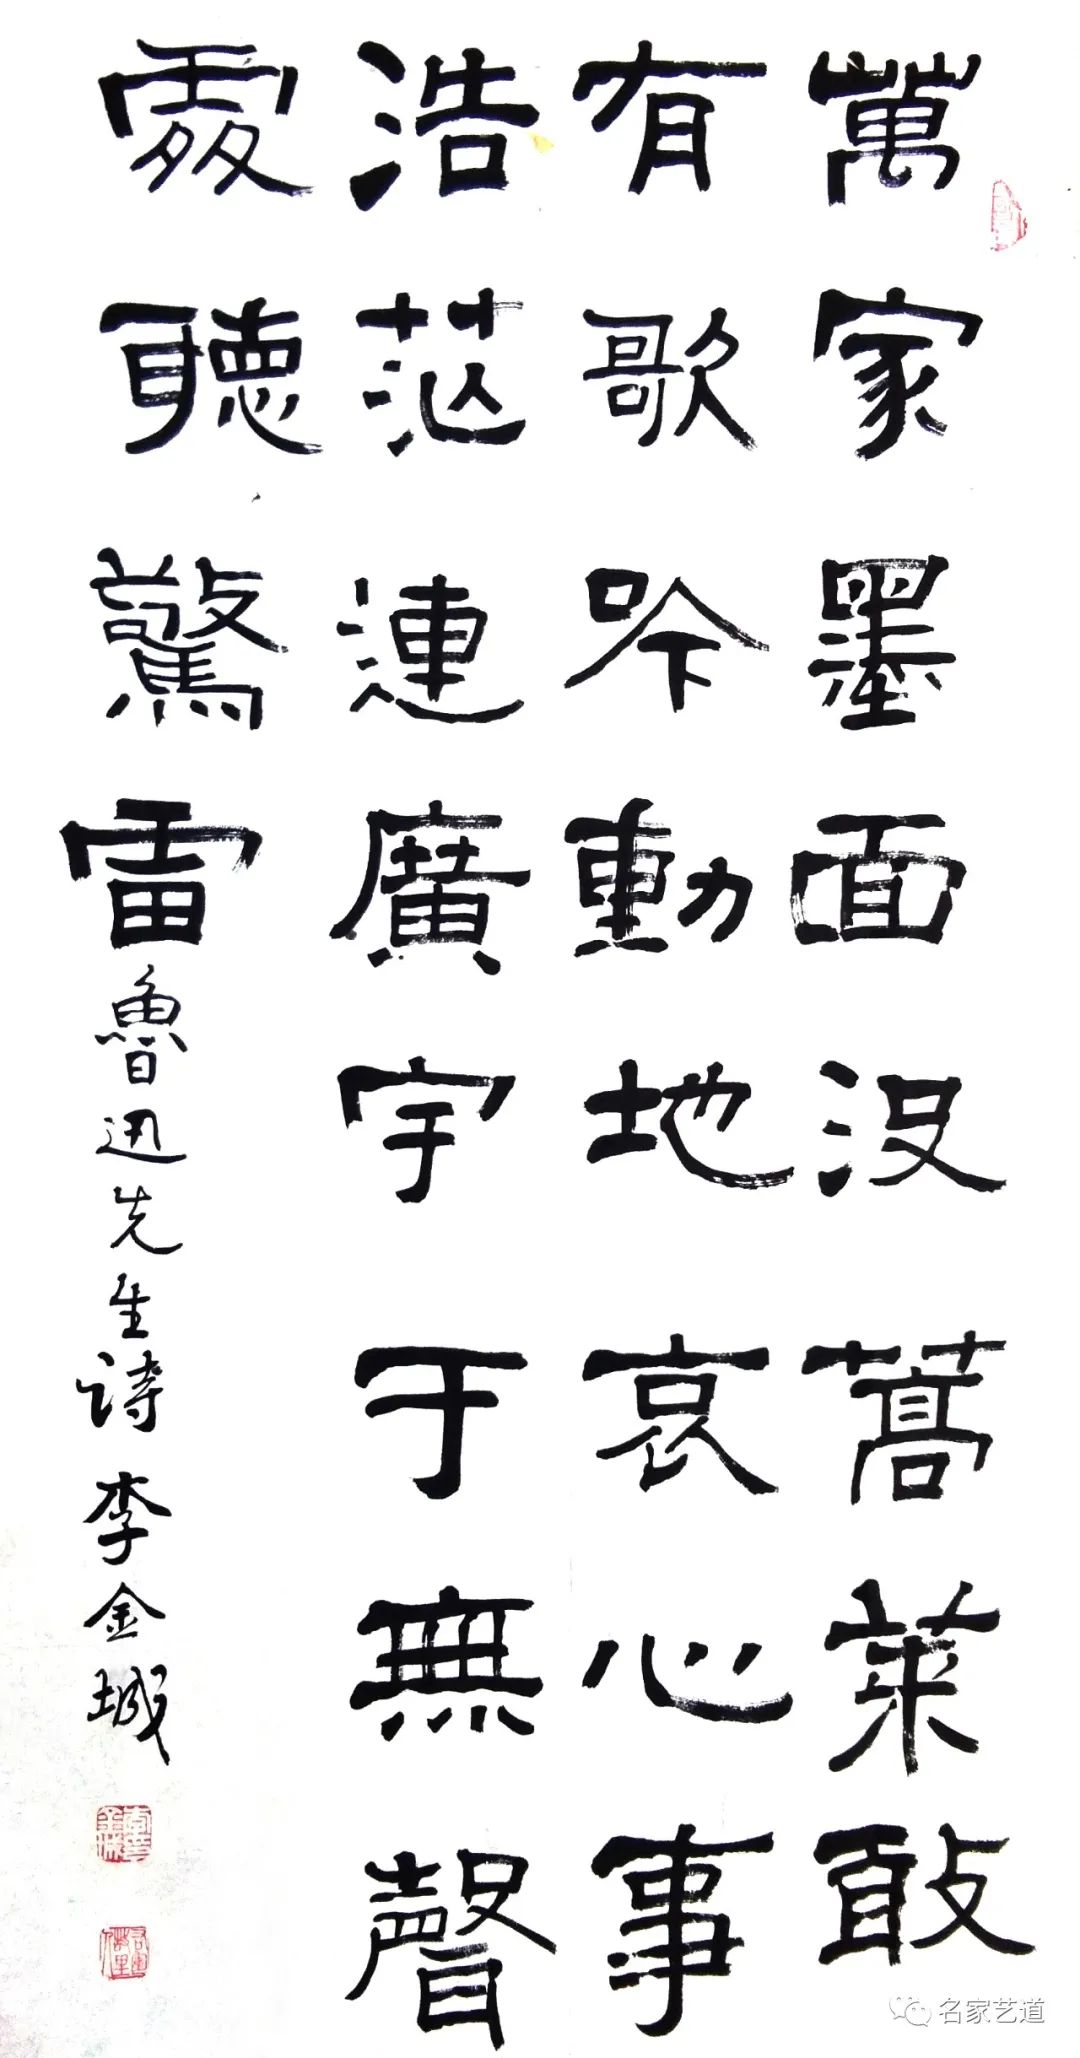 萬家墨面沒蒿萊敢
有歌吟動地哀心事
浩茫連廣宇于無聲
處聽驚雷魯迅先生诗 李金城
名家艺道